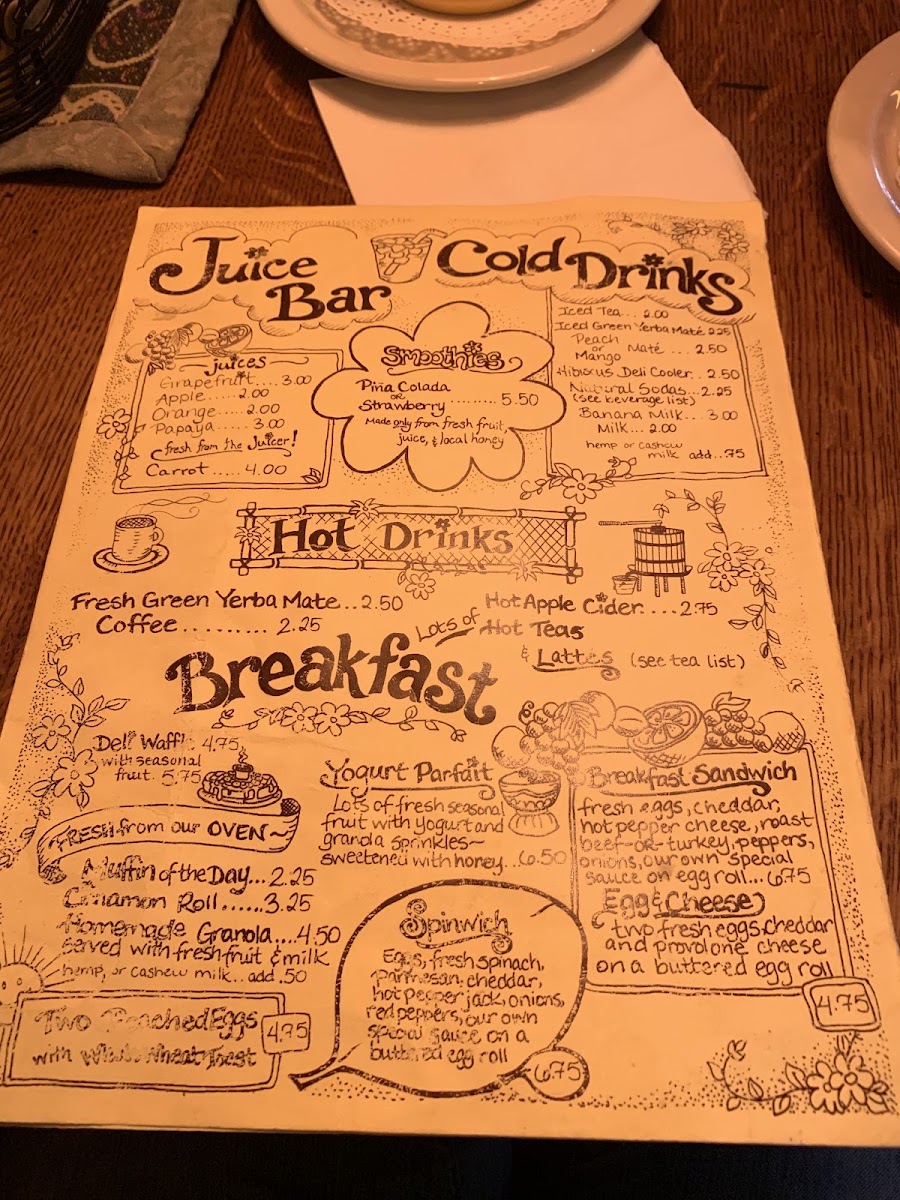 Juice
Bar
Cold Drinks
Juices
Grapefruit.... 3.00
Apple..... 2.00
Orange..... 2.00
Papaya..... 3.00
fresh from the Juicer!
Carrot..... 4.00
Smoothies
Piña Colada
or
Strawberry ......... 5.50
Made only from fresh fruit,
juice, & local honey
Iced Tea... 2.00
Iced Green Yerba Maté 2.25
Peach
or
Mango Maté .... 2.50
Hibiscus Deli Cooler.. 2.50
Natural Sodas.. 2.25
(see beverage list)
Banana Milk.... 3.00
Milk... 2.00
hemp or cashew
milk add..75
Hot Drinks
Fresh Green Yerba Mate...2.50
Coffee.......... 2.25
Hot Apple Cider....2.75
Lots of Hot Teas
& Lattes (see tea list)
Breakfast
Deli Waffle 4.75
with seasonal
fruit. 5.75
FRESH from our OVEN
Muffin of the Day...2.25
Cinnamon Roll......3.25
Homemade Granola....4.50
served with fresh fruit & milk
hemp, or cashew milk...add .50
Two Poached Eggs
with Whole Wheat Toast
4.75
Yogurt Parfait
Lots of fresh seasonal
fruit with yogurt and
granola sprinkles~
sweetened with honey...6.50
Spinwich
Eggs, fresh spinach,
parmesan, cheddar,
hot pepper jack, onions,
red peppers, our own
special sauce on a
buttered egg roll
6.75
Breakfast Sandwich
fresh eggs, cheddar,
hot pepper cheese, roast
beef-OR-turkey, peppers,
onions, our own special
sauce on egg roll...6.75
Egg & Cheese
two fresh eggs, cheddar
and provolone cheese
on a buttered egg roll
4.75